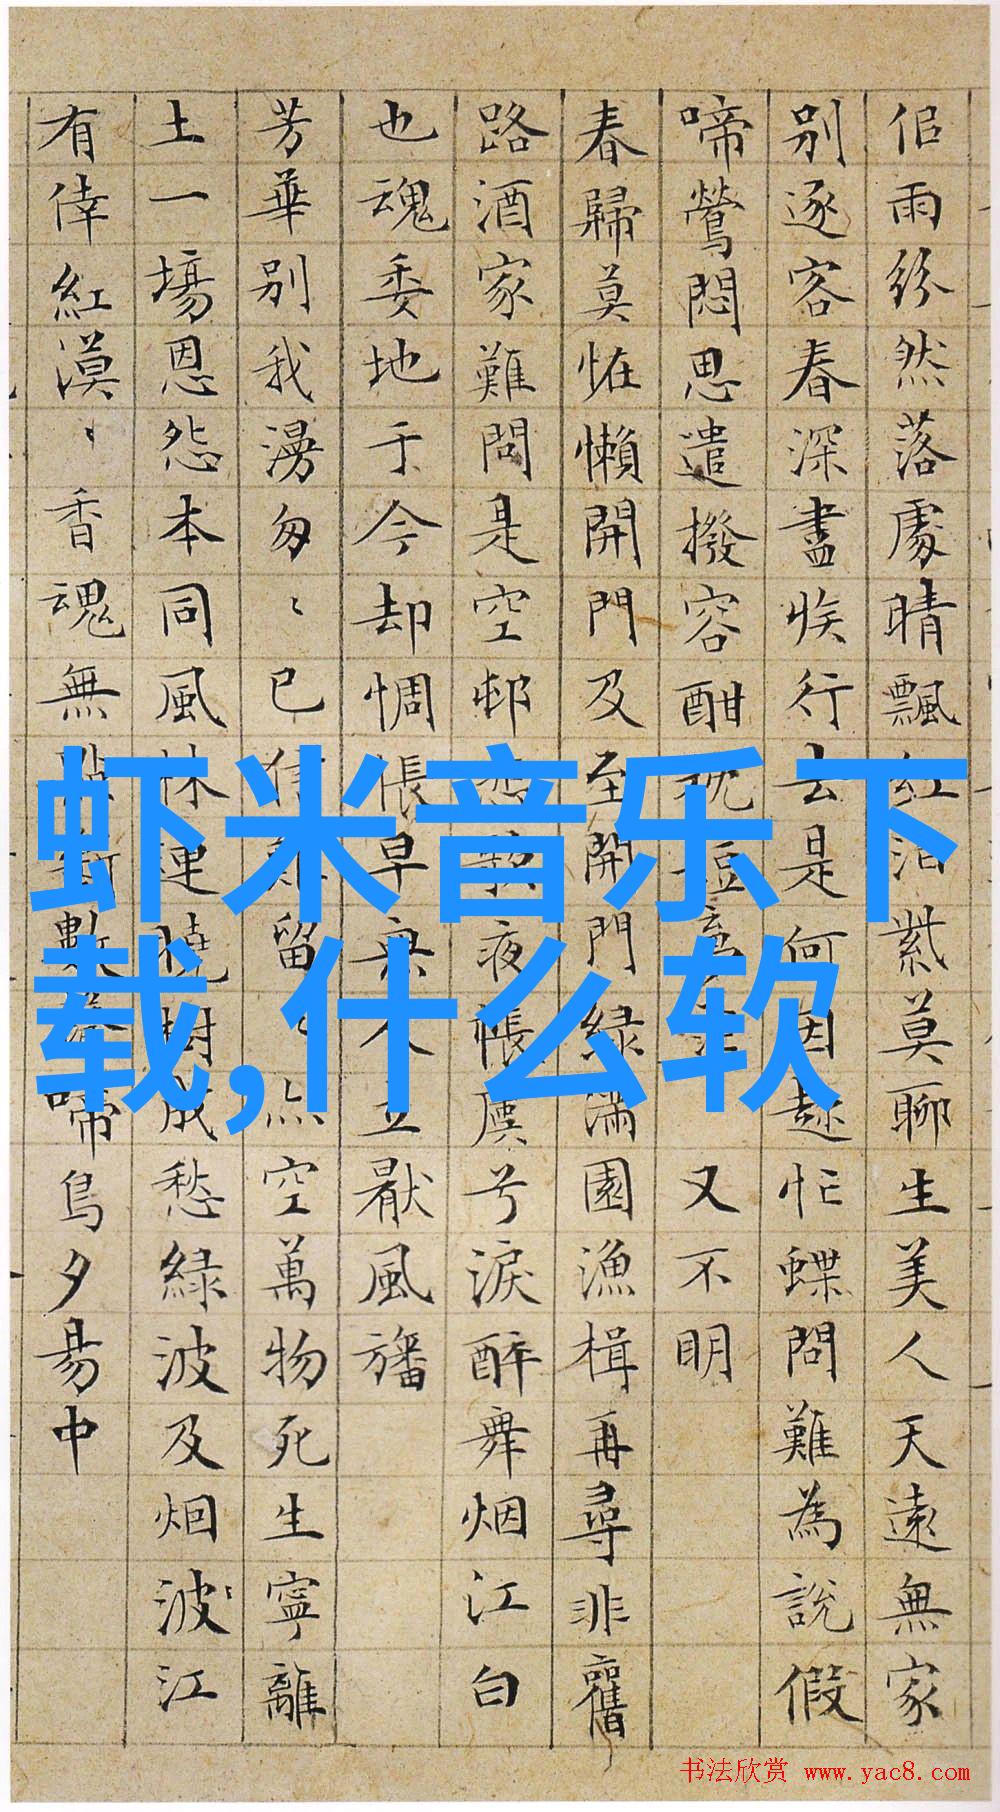 佀雨紛然落處晴飄紅泊紫莫聊生美人天遠無家
別逐客春深盡疾行去是何因趁忙蝶問難為說假
啼鶯悶思遣撥容酣枕短又不明
春歸莫恠懶開門及至開門緑滿園漁楫再尋非舊
路酒家難問是空邨夜悵虞兮淚醉舞烟江白
也魂委地于今却惆悵早無人立厭風旛
芳華别我漫匆〻已信難留〻空萬物死生寧離
土一場恩怨本同風株連曉樹成愁緑波及烟波江
有倖紅漠〻香魂無數聲啼鳥夕昜中
虾米音乐下
载,什么软
书法欣赏 www.yac8.com